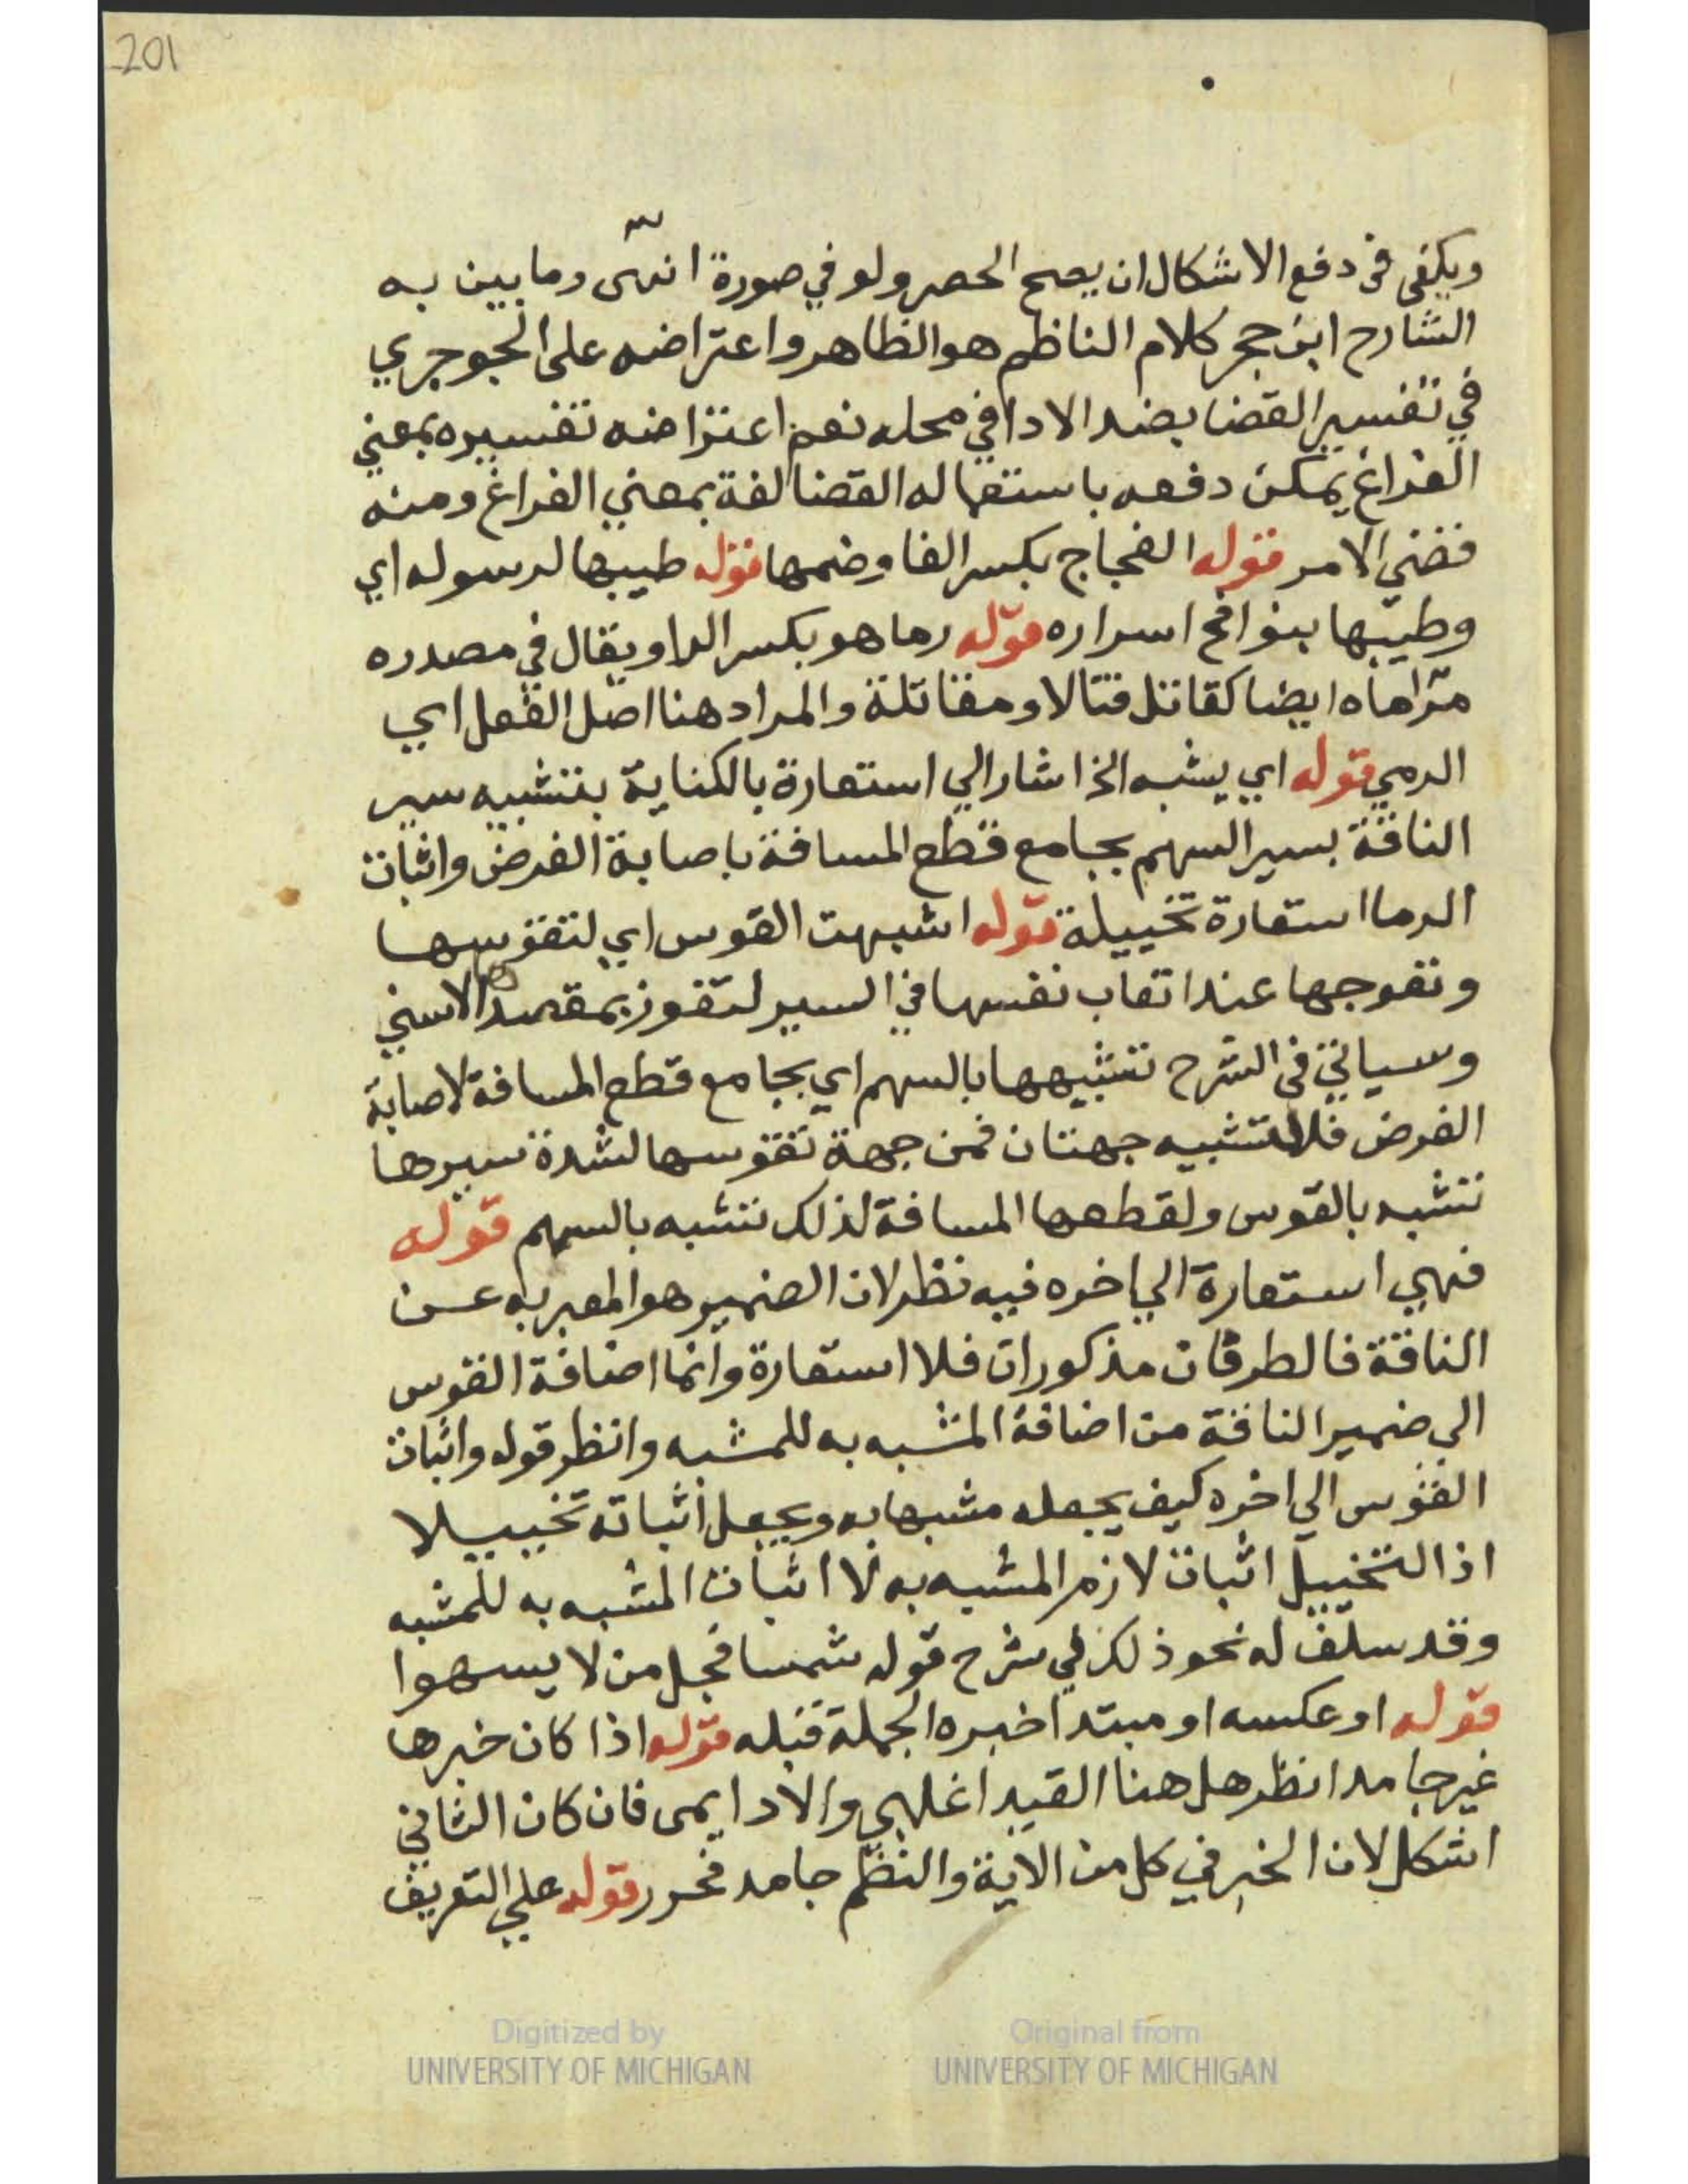 201
ويكفي في دفع الاشكال ان يصح الحصر ولو في صورة انتهى وما بين به
الشارح ابن حجر كلام الناظم هو الظاهر واعتراضه على الجوجري
في تفسير القضا بضد الادا في محله نعم اعتراضه تفسيره بمعني
الفراغ يمكن دفعه باستعماله القضا لغة بمعني الفراغ ومنه
قضي الامر قوله الفجاج بكسر الفا وضمها قوله طيبها لرسوله اي
وطيبها بنوافح اسراره قوله رما هو بكسر الرا ويقال في مصدره
مراماه ايضا كقاتل قتالا ومقاتلة والمراد هنا اصل الفعل اي
الرمي قوله اي يشبه الخ اشار الي استعارة بالكناية بتشبيه سير
الناقة بسير السهم بجامع قطع المسافة باصابة الغرض واثبات
الرما استعارة تخييلة قوله اشبهت القوس اي لتقوسها
وتعوجها عند اتعاب نفسها في السير لتفوز بمقصدها الاسني
وسياتي في الشرح تشبيهها بالسهم اي بجامع قطع المسافة لاصابة
الغرض فللتشبيه جهتان فمن جهة تقوسها لشدة سيرها
تشبه بالقوس ولقطعها المسافة لذلك تشبه بالسهم قوله
فهي استعارة الي اخره فيه نظر لان الضمير هو المعبر به عن
الناقة فالطرفان مذكوران فلا استعارة وانما اضافة القوس
الى ضمير الناقة من اضافة المشبه به للمشبه وانظر قوله واثبات
القوس الي اخره كيف يجعله مشبها به ويجعل اثباته تخييلا
اذ التخييل اثبات لازم المشبه به لا اثبات المشبه به للمشبه
وقد سلف له نحو ذلك في شرح قوله شمسا فجل من لا يسهوا
قوله او عكسه او مبتدا خبره الجملة قبله قوله اذا كان خبرها
غير جامد انظر هل هنا القيد اغلبي والا دايمى فان كان الثاني
اشكل لان الخبر في كل من الاية والنظم جامد فحرر قوله علي التعريف
Digitized by
UNIVERSITY OF MICHIGAN
Original from
UNIVERSITY OF MICHIGAN